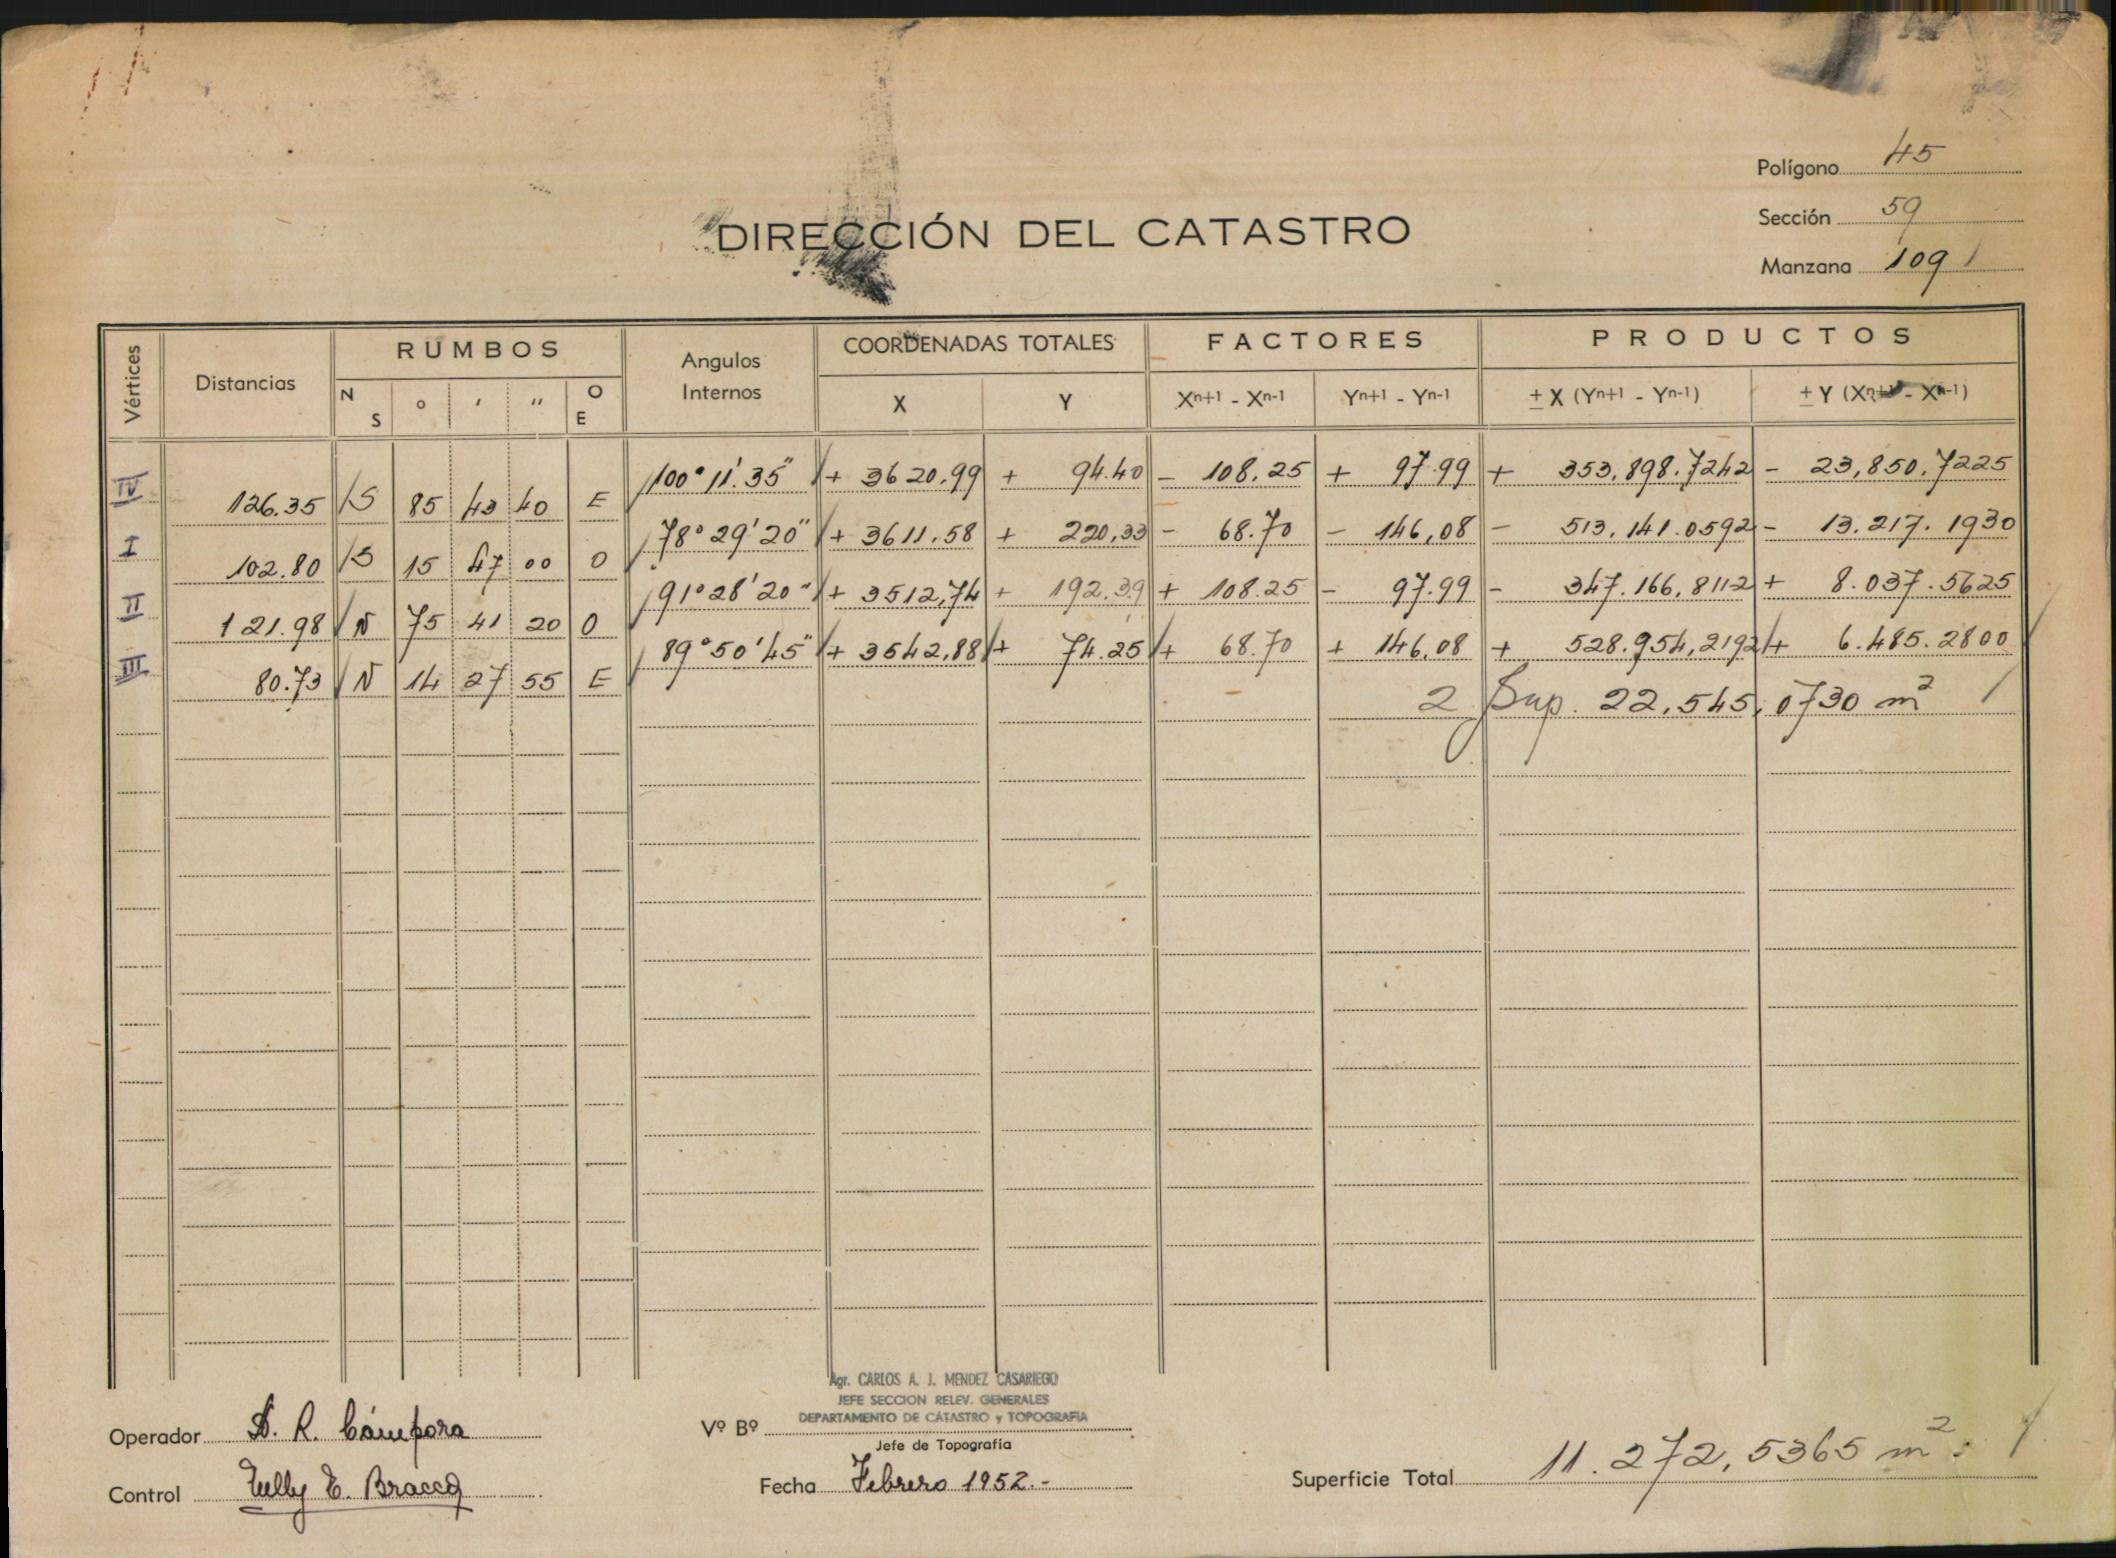 Polígono 45
Sección 59
DIRECCIÓN DEL CATASTRO
Manzana 109
Vértices Distancias RUMBOS Angulos Internos COORDENADAS TOTALES FACTORES PRODUCTOS
N S o ' '' O E X Y Xn+1 - Xn-1 Yn+1 - Yn-1 ± X (Yn+1 - Yn-1) ± Y (Xn+1 - Xn-1)
IV 126.35 S 85 43 40 E 100° 11' 35" + 3620.99 + 94.40 - 108.25 + 97.99 + 353,898.7242 - 23,850.7225
I 102.80 S 15 47 00 O 78° 29' 20" + 3611.58 + 220,33 - 68.70 - 146,08 - 513.141.0592 - 13.217.1930
II 121.98 N 75 41 20 O 91° 28' 20" + 3512,74 + 192.39 + 108.25 - 97.99 - 347.166,8112 + 8.037.5625
III 80.73 N 14 27 55 E 89° 50' 45" + 3542,88 + 74.25 + 68.70 + 146.08 + 528.954,2192 + 6.485.2800
2 Sup. 22.545,0730 m²
Agr. CARLOS A. J. MENDEZ CASARIEGO
JEFE SECCION RELEV. GENERALES
DEPARTAMENTO DE CATASTRO y TOPOGRAFIA
Operador R. Cámpora Vº Bº
Jefe de Topografía
Control E. Fecha Febrero 1952.-
Superficie Total 11.272,5365 m²